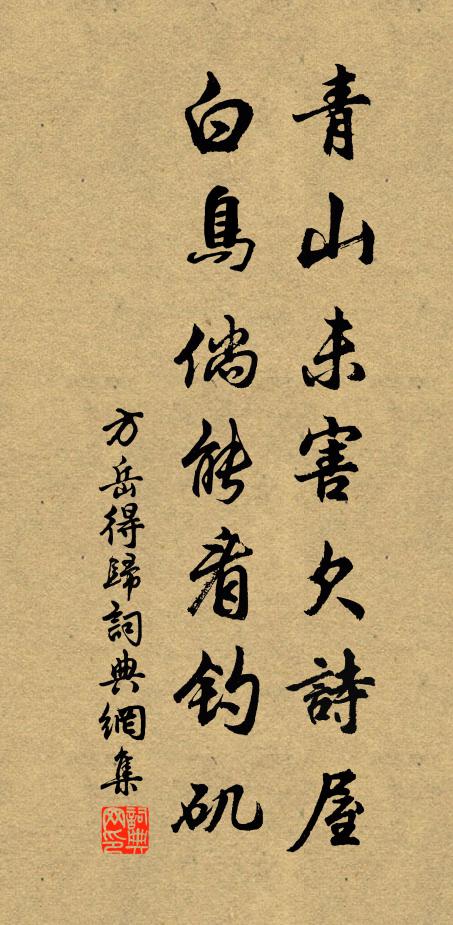 青山未害欠詩屋
白鳥倘能看釣矶
方岳得歸詞典網集
詞典网印